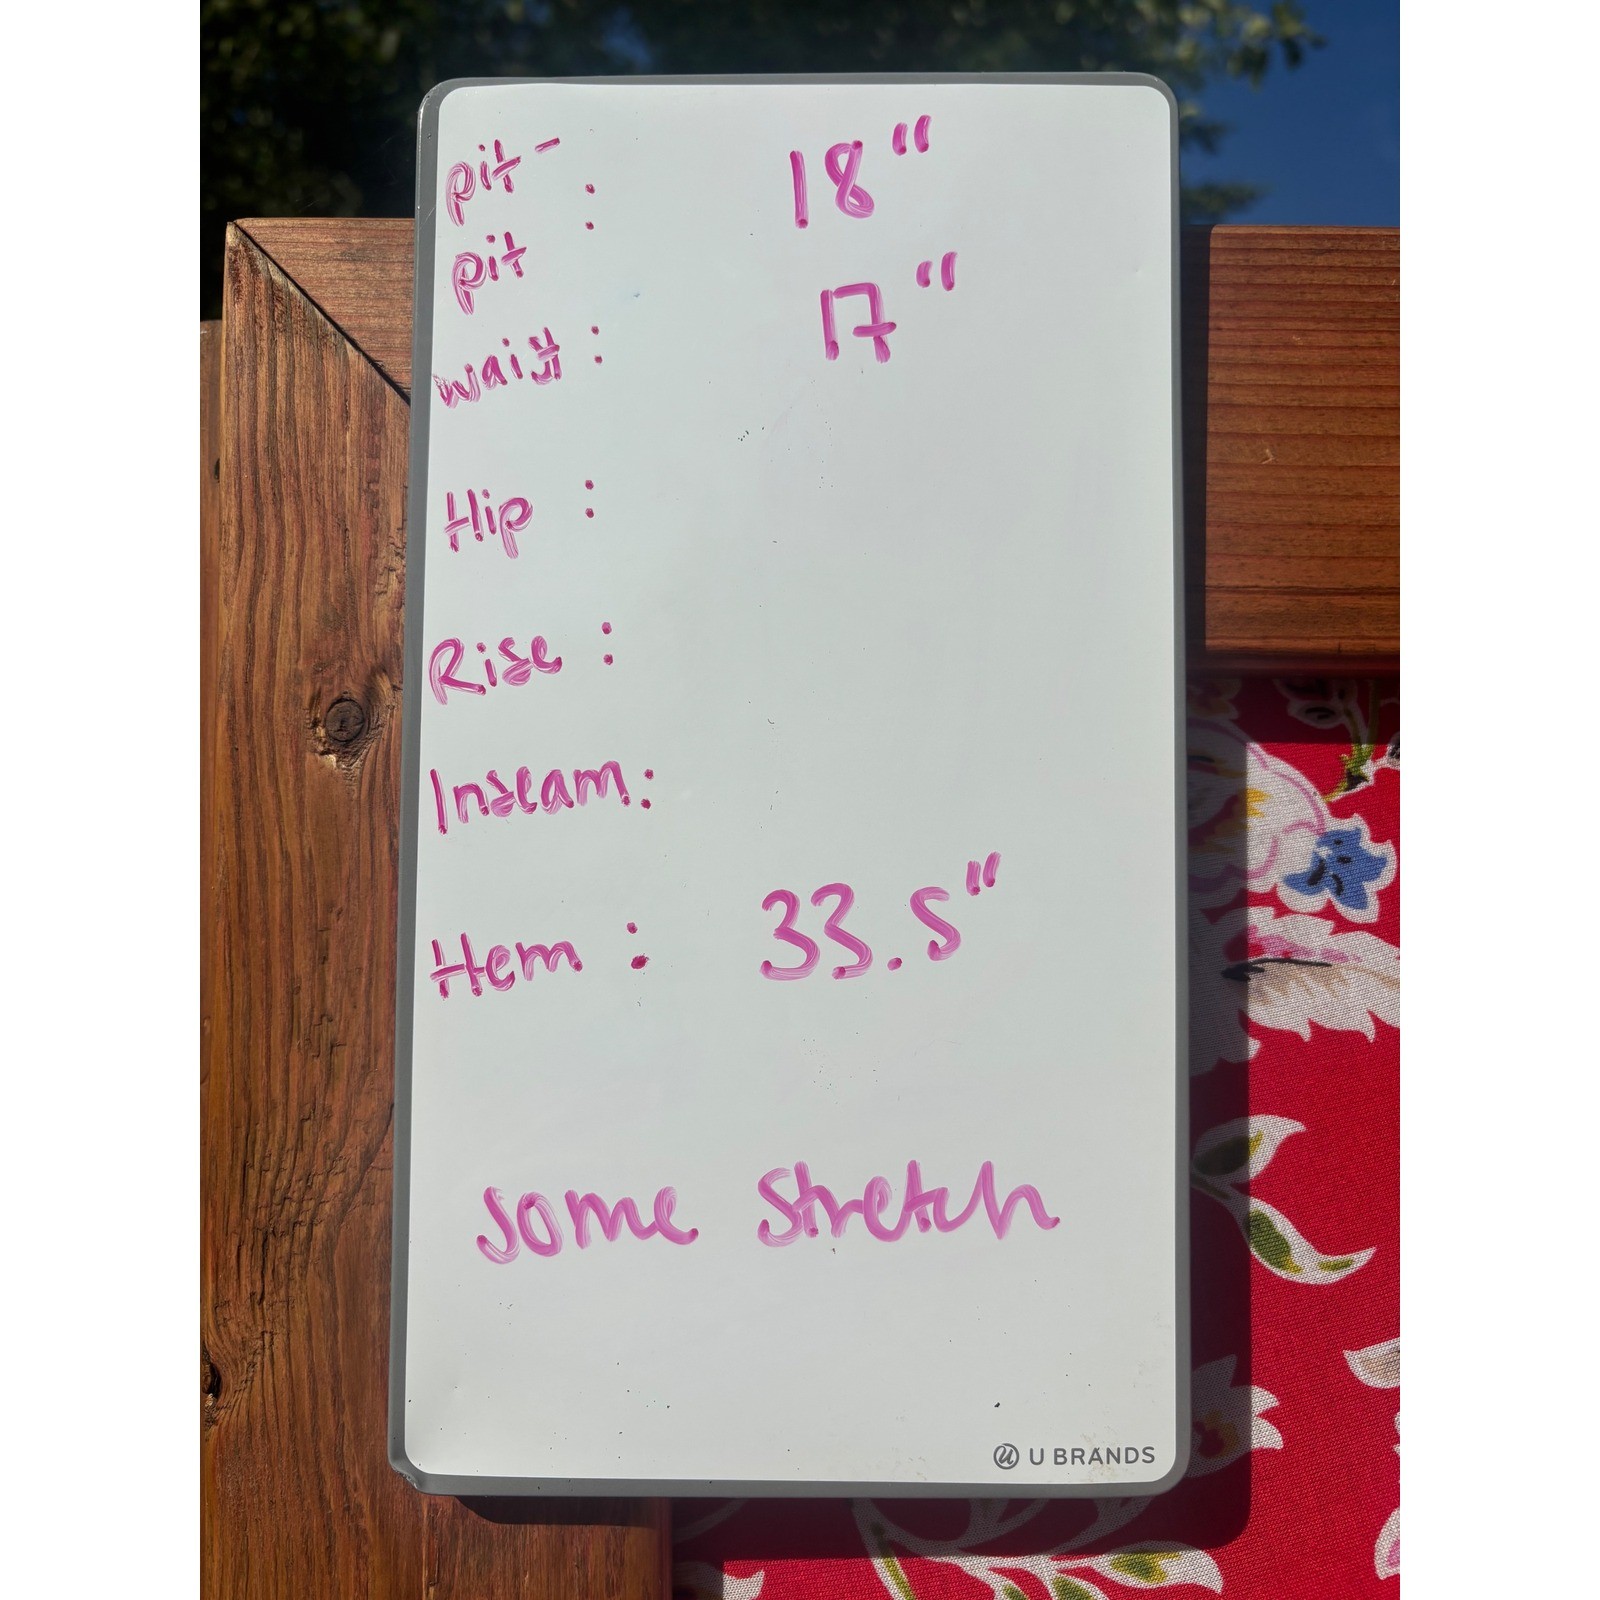 pit- : 18"
pit
waist: 17"
Hip :
Rise :
Inseam:
Hem : 33.5"
some stretch
U BRANDS